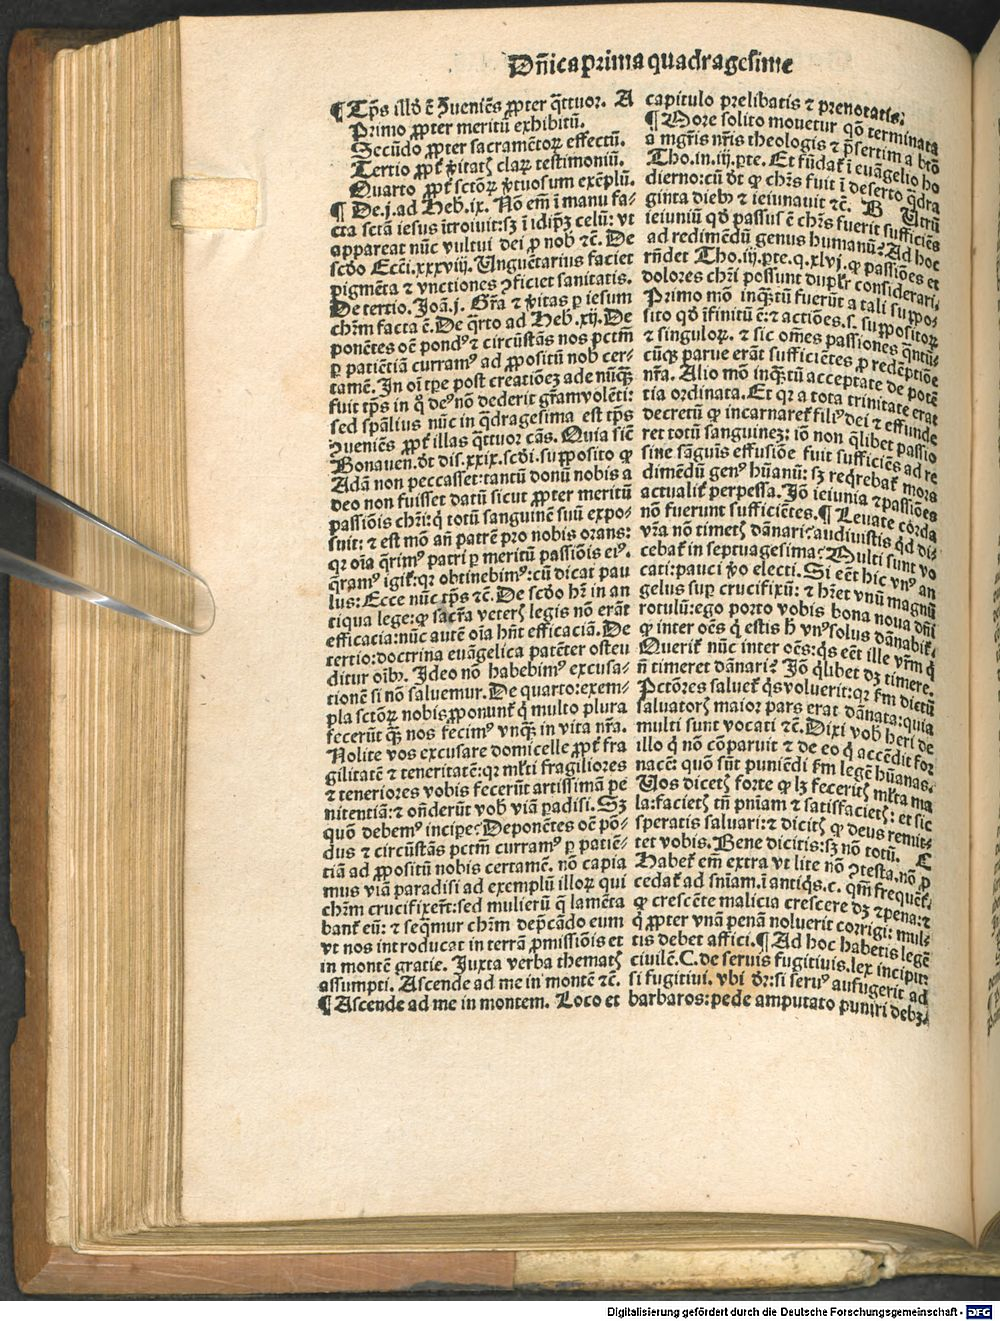 Dñica prima quadragesime
¶ Tp̄s illđ ē ꝯueniēs ꝓpter q̄ttuor. A
Primo ꝓpter meritū exhibitū.
Secūdo ꝓpter sacramētoꝝ effectū.
Tertio ꝓpt̄ ꝟitatꝭ claꝝ testimoniū.
Quarto ꝓpt̄ sctōꝝ ꝟtuosum exēplū.
¶ De.j.ad Heb̄.ix. Nō em̄ ī manu fa⸗
cta sctā iesus ītroiuit:sꝫ ī idip̄ꝫ celū: vt
appareat nūc vultui dei ꝑ nob̄ ⁊c̄. De
scđo Ecci.xxxviij. Vnguētarius faciet
pigmēta ⁊ vnctiones ꝯficiet sanitatis.
De tertio. Joā.j. Gr̄a ⁊ ꝟitas ꝑ iesum
chr̄m facta ē. De q̄rto ad Heb̄.xij. De
ponētes oē pondꝰ ⁊ circūstās nos pctm̄
ꝑ patiētiā curramꝰ ad ꝓpositū nob̄ cer⸗
tamē. In oī tp̄e post creatiōeꝫ ade nūqꝫ
fuit tp̄s in q̊ deꝰ nō dederit gr̄am volēti:
sed spāliꝰ nūc in q̄dragesima est tp̄s
ꝯueniēs ꝓpt̄ illas q̄ttuor cās. Quia sic̄
Bonauen. đt dis.xxix. scđi. supposito ꝙ
Adā non peccasset: tantū donū nobis a
deo non fuisset datū sicut ꝓpter meritū
passiōis chr̄i: q̇ totū sanguinē suū expo⸗
suit: ⁊ est mō añ patrē pro nobis orans:
qr oīa q̄rimꝰ patri ꝑ meritū passiōis eiꝰ.
q̄ramꝰ igit̄: qr obtinebimꝰ: cū dicat pau
lus: Ecce nūc tp̄s ⁊c̄. De scđo hr̄ in an
tiqua lege: ꝙ sacr̄a veterꝭ legis nō erāt
efficacia: nūc autē oīa hn̄t efficaciā. De
tertio: doctrina euāgelica patēter osteu
ditur oīb̄ꝰ. Ideo nō habebimꝰ excusa⸗
tionē si nō saluemur. De quarto: exem⸗
pla sctōꝝ nobis ꝓponunt̄ q̇ multo plura
fecerūt qꝫ nos fecimꝰ vnqꝫ in vita nr̄a.
Nolite vos excusare domicelle ꝓpt̄ fra
gilitatē ⁊ teneritatē: qr ml̄ti fragiliores
⁊ teneriores vobis fecerūt artissimā pe
nitentiā: ⁊ on̄derūt vob̄ viā ꝑadisi. Sꝫ
quō debemꝰ incipe? Deponētes oē pō⸗
dus ⁊ circūstās pctm̄ curramꝰ ꝑ patiē⸗
tiā ad ꝓpositū nobis certamē. nō capia
mus viā paradisi ad exemplū illoꝝ qui
chr̄m crucifixer̄t: sed mulierū q̄ lamēta
bant̄ eū: ⁊ seq̄mur chr̄m dep̄cādo eum
vt nos introducat in terrā ꝓmissiōis et
in montē gratie. Juxta verba thematꝭ
assumpti. Ascende ad me in montē ⁊c̄.
¶ Ascende ad me in montem. Loco et
capitulo prelibatis ⁊ prenotatis.
¶ More solito mouetur qō terminata
a mgr̄is nr̄is theologis ⁊ p̄sertim a btō
Tho.in.iij.pte. Et fūdat̄ ī euāgelio ho
dierno: cū đt ꝙ chr̄s fuit ī deserto q̄dra
ginta dieb̄ꝰ ⁊ ieiunauit ⁊c̄. B Vtrū
ieiuniū qđ passus ē chr̄s fuerit sufficiēs
ad redimēdū genus humanū? Ad hoc
rn̄det Tho.iij.pte.q.xlvj. ꝙ passiōes et
dolores chr̄i possunt dupl̄r considerari.
Primo mō inqꝫtū fuerūt a tali suppo⸗
sito qđ īfinitū ē: ⁊ actiōes.s. suppositoꝝ
⁊ singuloꝝ. ⁊ sic om̄es passiones q̄ntū⸗
cūqꝫ parue erāt sufficiētes ꝑ redēptiōe
nr̄a. Alio mō inqꝫtū acceptate de potē
tia ordinata. Et qr a tota trinitate erat
decretū ꝙ incarnaret̄ filiꝰ dei ⁊ effunde
ret totū sanguineꝫ: iō non q̄libet passio
sine sāguis effusiōe fuit sufficiēs ad re
dimēdū genꝰ hūanū: sꝫ reqrebat̄ mors
actualit̄ perpessa. Iō ieiunia ⁊ passiōes
nō fuerunt sufficiētes. ¶ Leuate corda
vr̄a nō timetꝭ dānari? audiuistis qđ di⸗
cebat̄ in septuagesima? Multi sunt vo
cati: pauci ꝟo electi. Si eēt hic vnꝰ an
gelus suꝑ crucifixū: ⁊ hr̄et vnū magnū
rotulū: ego porto vobis bona noua dn̄i
ꝙ inter oēs q̇ estis h̄ vnꝰ solus dānabit̄.
Querit̄ nūc inter oēs: q̇s eēt ille vr̄m q̇
n̄ timeret dānari? Iō q̄libet dꝫ timere.
Pctōres saluet̄ q̇s voluerit: qr fm̄ dictū
saluatorꝭ maior pars erat dānata: quia
multi sunt vocati ⁊c̄. Dixi vob̄ heri de
illo q̇ nō cōparuit ⁊ de eo q̇ accēdit for
nacē: quō sūt puniēdi fm̄ legē hūanas.
Vos dicetꝭ forte ꝙ lꝫ feceritꝭ ml̄ta ma
la: facietꝭ tn̄ pn̄iam ⁊ satisfacietꝭ: et sic
speratis saluari: ⁊ dicitꝭ ꝙ deus remit⸗
tet vobis. Bene dicitis: sꝫ nō totū. C
Habet̄ em̄ extra vt lite nō ꝯtesta. nō ꝓ
cedat̄ ad sn̄iam. ī antiq̇s.c. qm̄ frequēt̄.
ꝙ crescēte malicia crescere dꝫ ⁊ pena: ⁊
q̇ ꝓpter vnā penā noluerit corrigi: mul⸗
tis debet affici. ¶ Ad hoc habetis legē
ciuilē. C. de seruis fugitiuis. lex incipit:
si fugitiui. vbi đr: si seruꝰ aufugerit ad
barbaros: pede amputato puniri debꝫ.
Digitalisierung gefördert durch die Deutsche Forschungsgemeinschaft - DFG